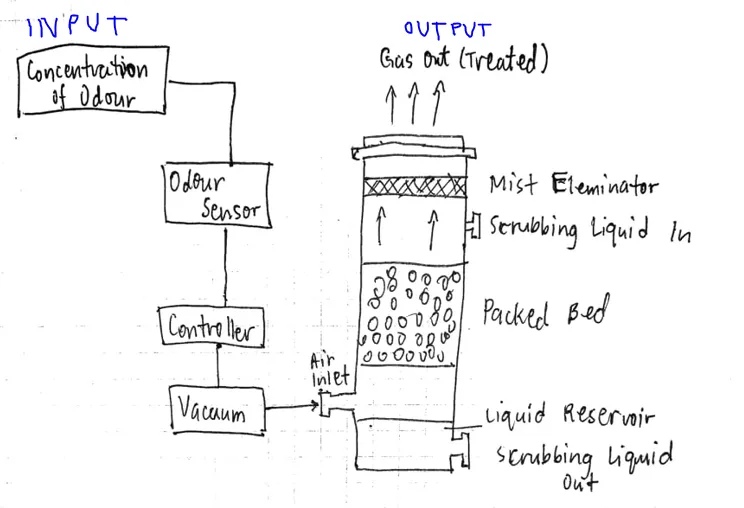 INPUT
Concentration
of Odour
Odour
Sensor
Controller
Vacuum
Air
inlet
OUTPUT
Gas Out (Treated)
Mist Eleminator
Scrubbing Liquid In
Packed Bed
Liquid Reservoir
Scrubbing Liquid
Out